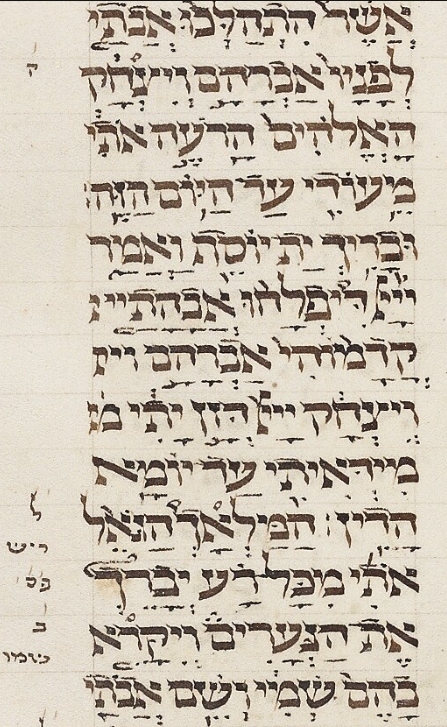 אשר התהלכו אבתי
לפניו אברהם ויצחק
האלהים הרעה אתי
מעודי עד היום הזה
ובריך ית יוסף ואמר
ייי דיפלחו אבהתיי
קדמוהי אברהם ויי
ויצחק ייי דזן יתי מ
מיידאיתי עד יומא
הדין׃ המלאך הגאל
ל
ריש
אתי מכל רע יברך
פס
את הנערים ויקרא
ב
בהם שמי ושם אבתי